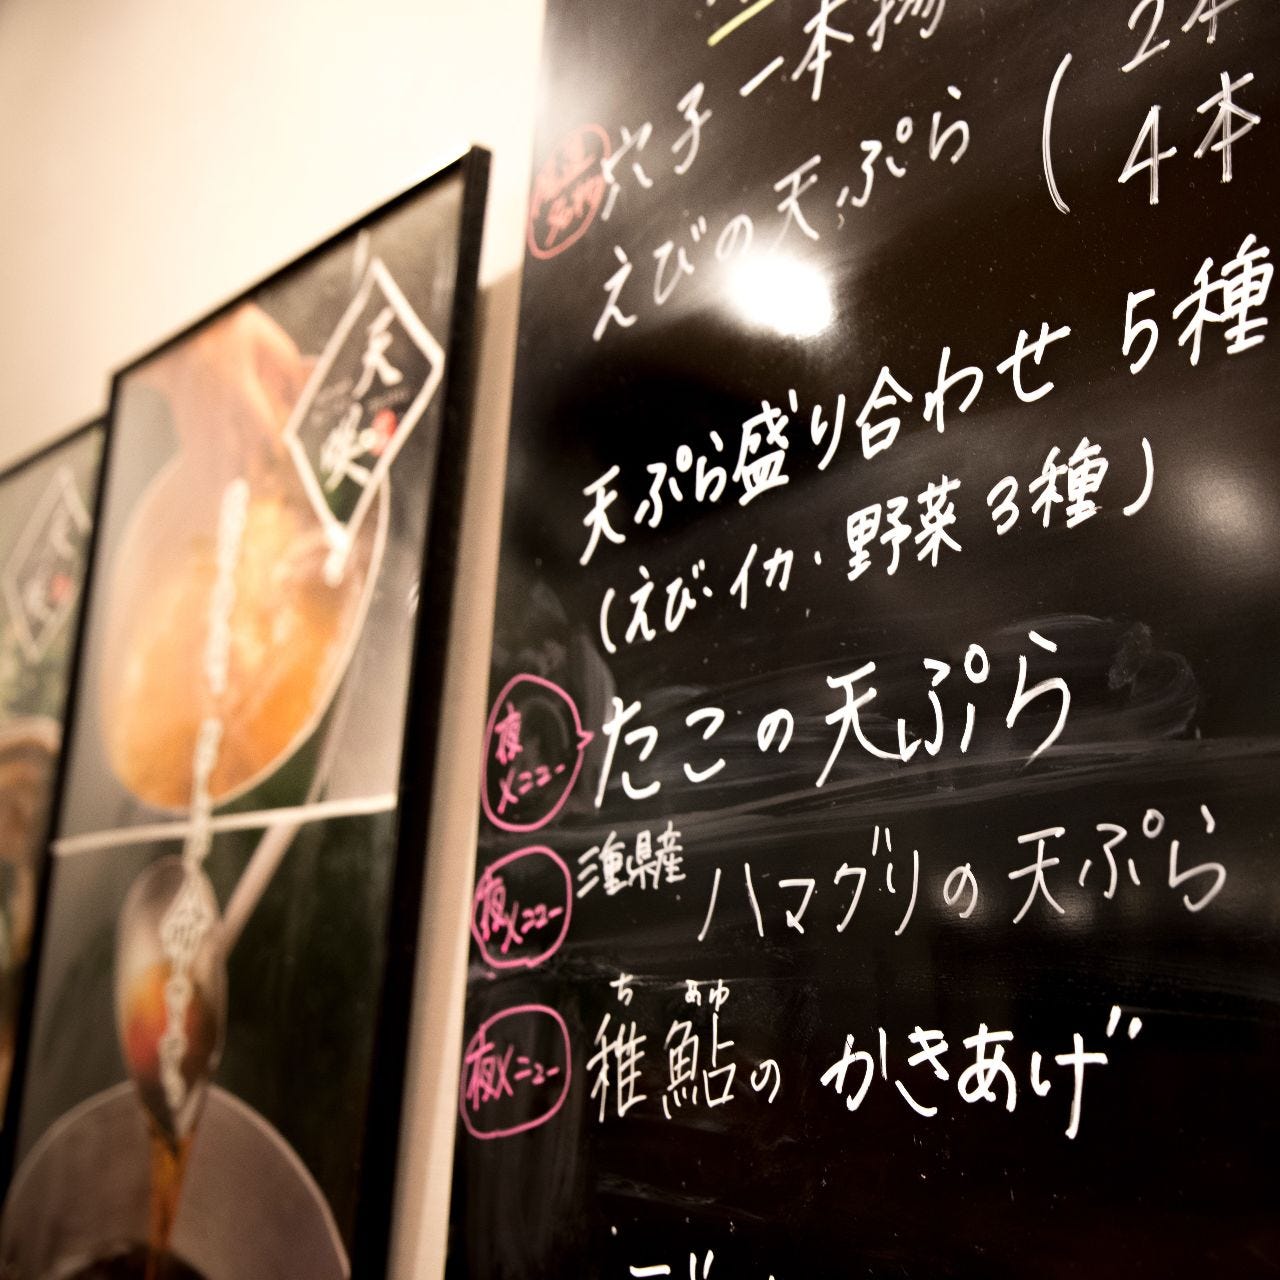 穴子 一本揚
えびの天ぷら ( 2本
4本
天ぷら盛り合わせ 5種
(えび・イカ・野菜3種)
夜メニュー たこの天ぷら
夜メニュー 三重県産 ハマグリの天ぷら
ち あゆ
夜メニュー 稚鮎の かきあげ